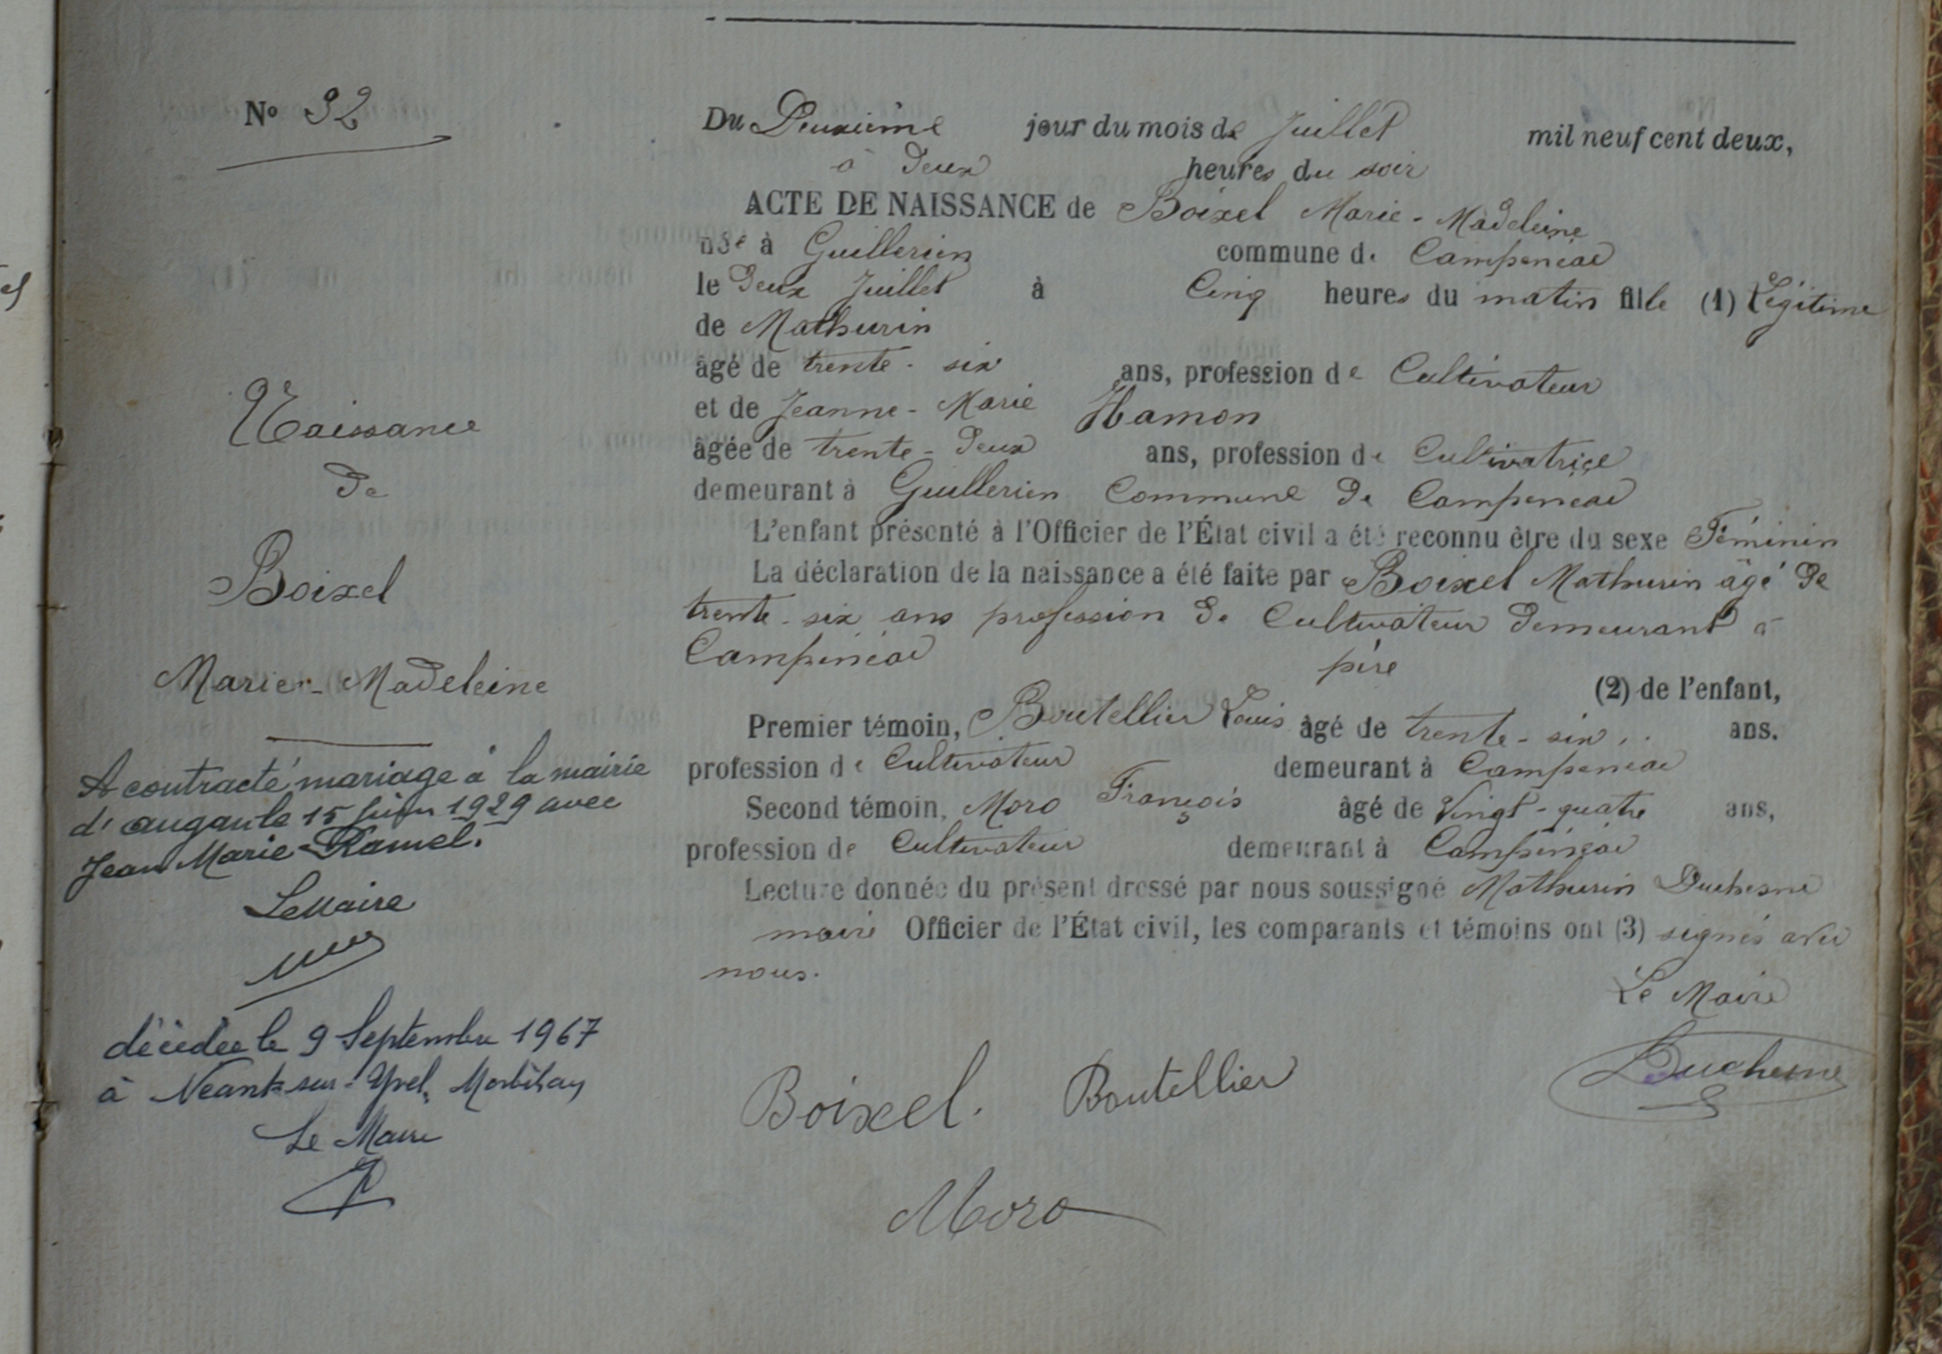 N° 32
Naissance
de
Boixel
Marie-Madeleine
A contracté mariage à la mairie
d'augan le 15 juin 1929 avec
Jean Marie Ramel.
Le Maire
décédée le 9 Septembre 1967
à Néant-sur-Yvel, Morbihan
Le Maire
Du Deuxième jour du mois de Juillet mil neuf cent deux,
à deux heures du soir
ACTE DE NAISSANCE de Boixel Marie-Madeleine
née à Guillerien commune de Campénéac
le deux Juillet à Cinq heures du matin fille (1) Légitime
de Mathurin
âgé de trente-six ans, profession de Cultivateur
et de Jeanne-Marie Hamon
âgée de trente-deux ans, profession de Cultivatrice
demeurant à Guillerien Commune de Campénéac
L'enfant présenté à l'Officier de l'État civil a été reconnu être du sexe Féminin
La déclaration de la naissance a été faite par Boixel Mathurin âgé de
trente-six ans profession de Cultivateur demeurant à
Campénéac père
(2) de l'enfant,
Premier témoin, Boutellier Louis âgé de trente-six ans.
profession de Cultivateur demeurant à Campénéac
Second témoin, Moro François âgé de Vingt-quatre ans,
profession de Cultivateur demeurant à Campénéac
Lecture donnée du présent dressé par nous soussigné Mathurin Duchesne
maire Officier de l'État civil, les comparants et témoins ont (3) signés avec
nous.
Le Maire
Boixel. Boutellier Duchesne
Moro